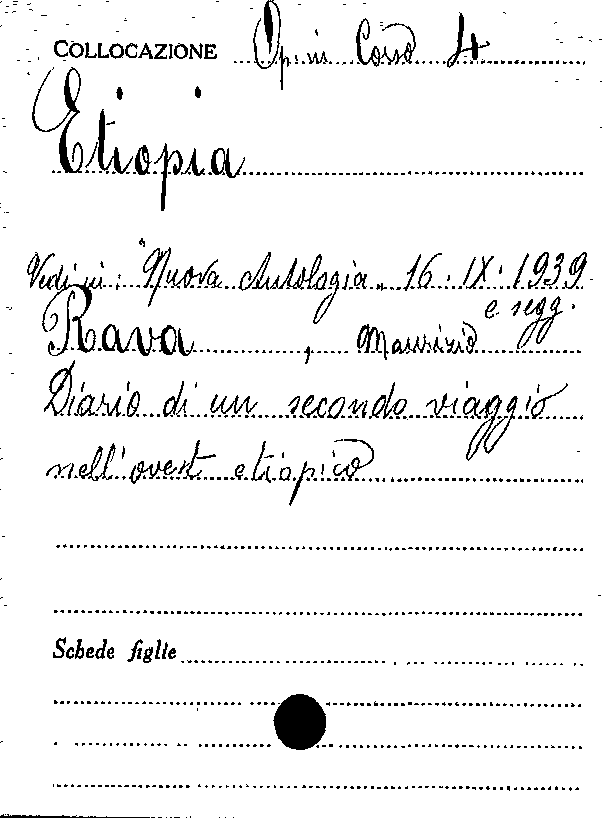 COLLOCAZIONE Op. in Corso 4
Etiopia
Vedi in: "Nuova Antologia" 16. IX. 1939
e segg.
Rava, Maurizio
Diario di un secondo viaggio
nell'ovest etiopico
Schede figlie